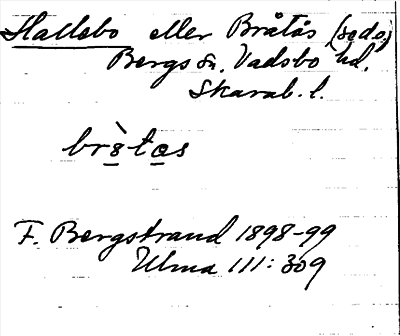 Hallebo eller Bråtås (se d.o.)
Bergs sn. Vadsbo hd.
Skarab. l.
F. Bergstrand 1898-99
Ulma 111: 309